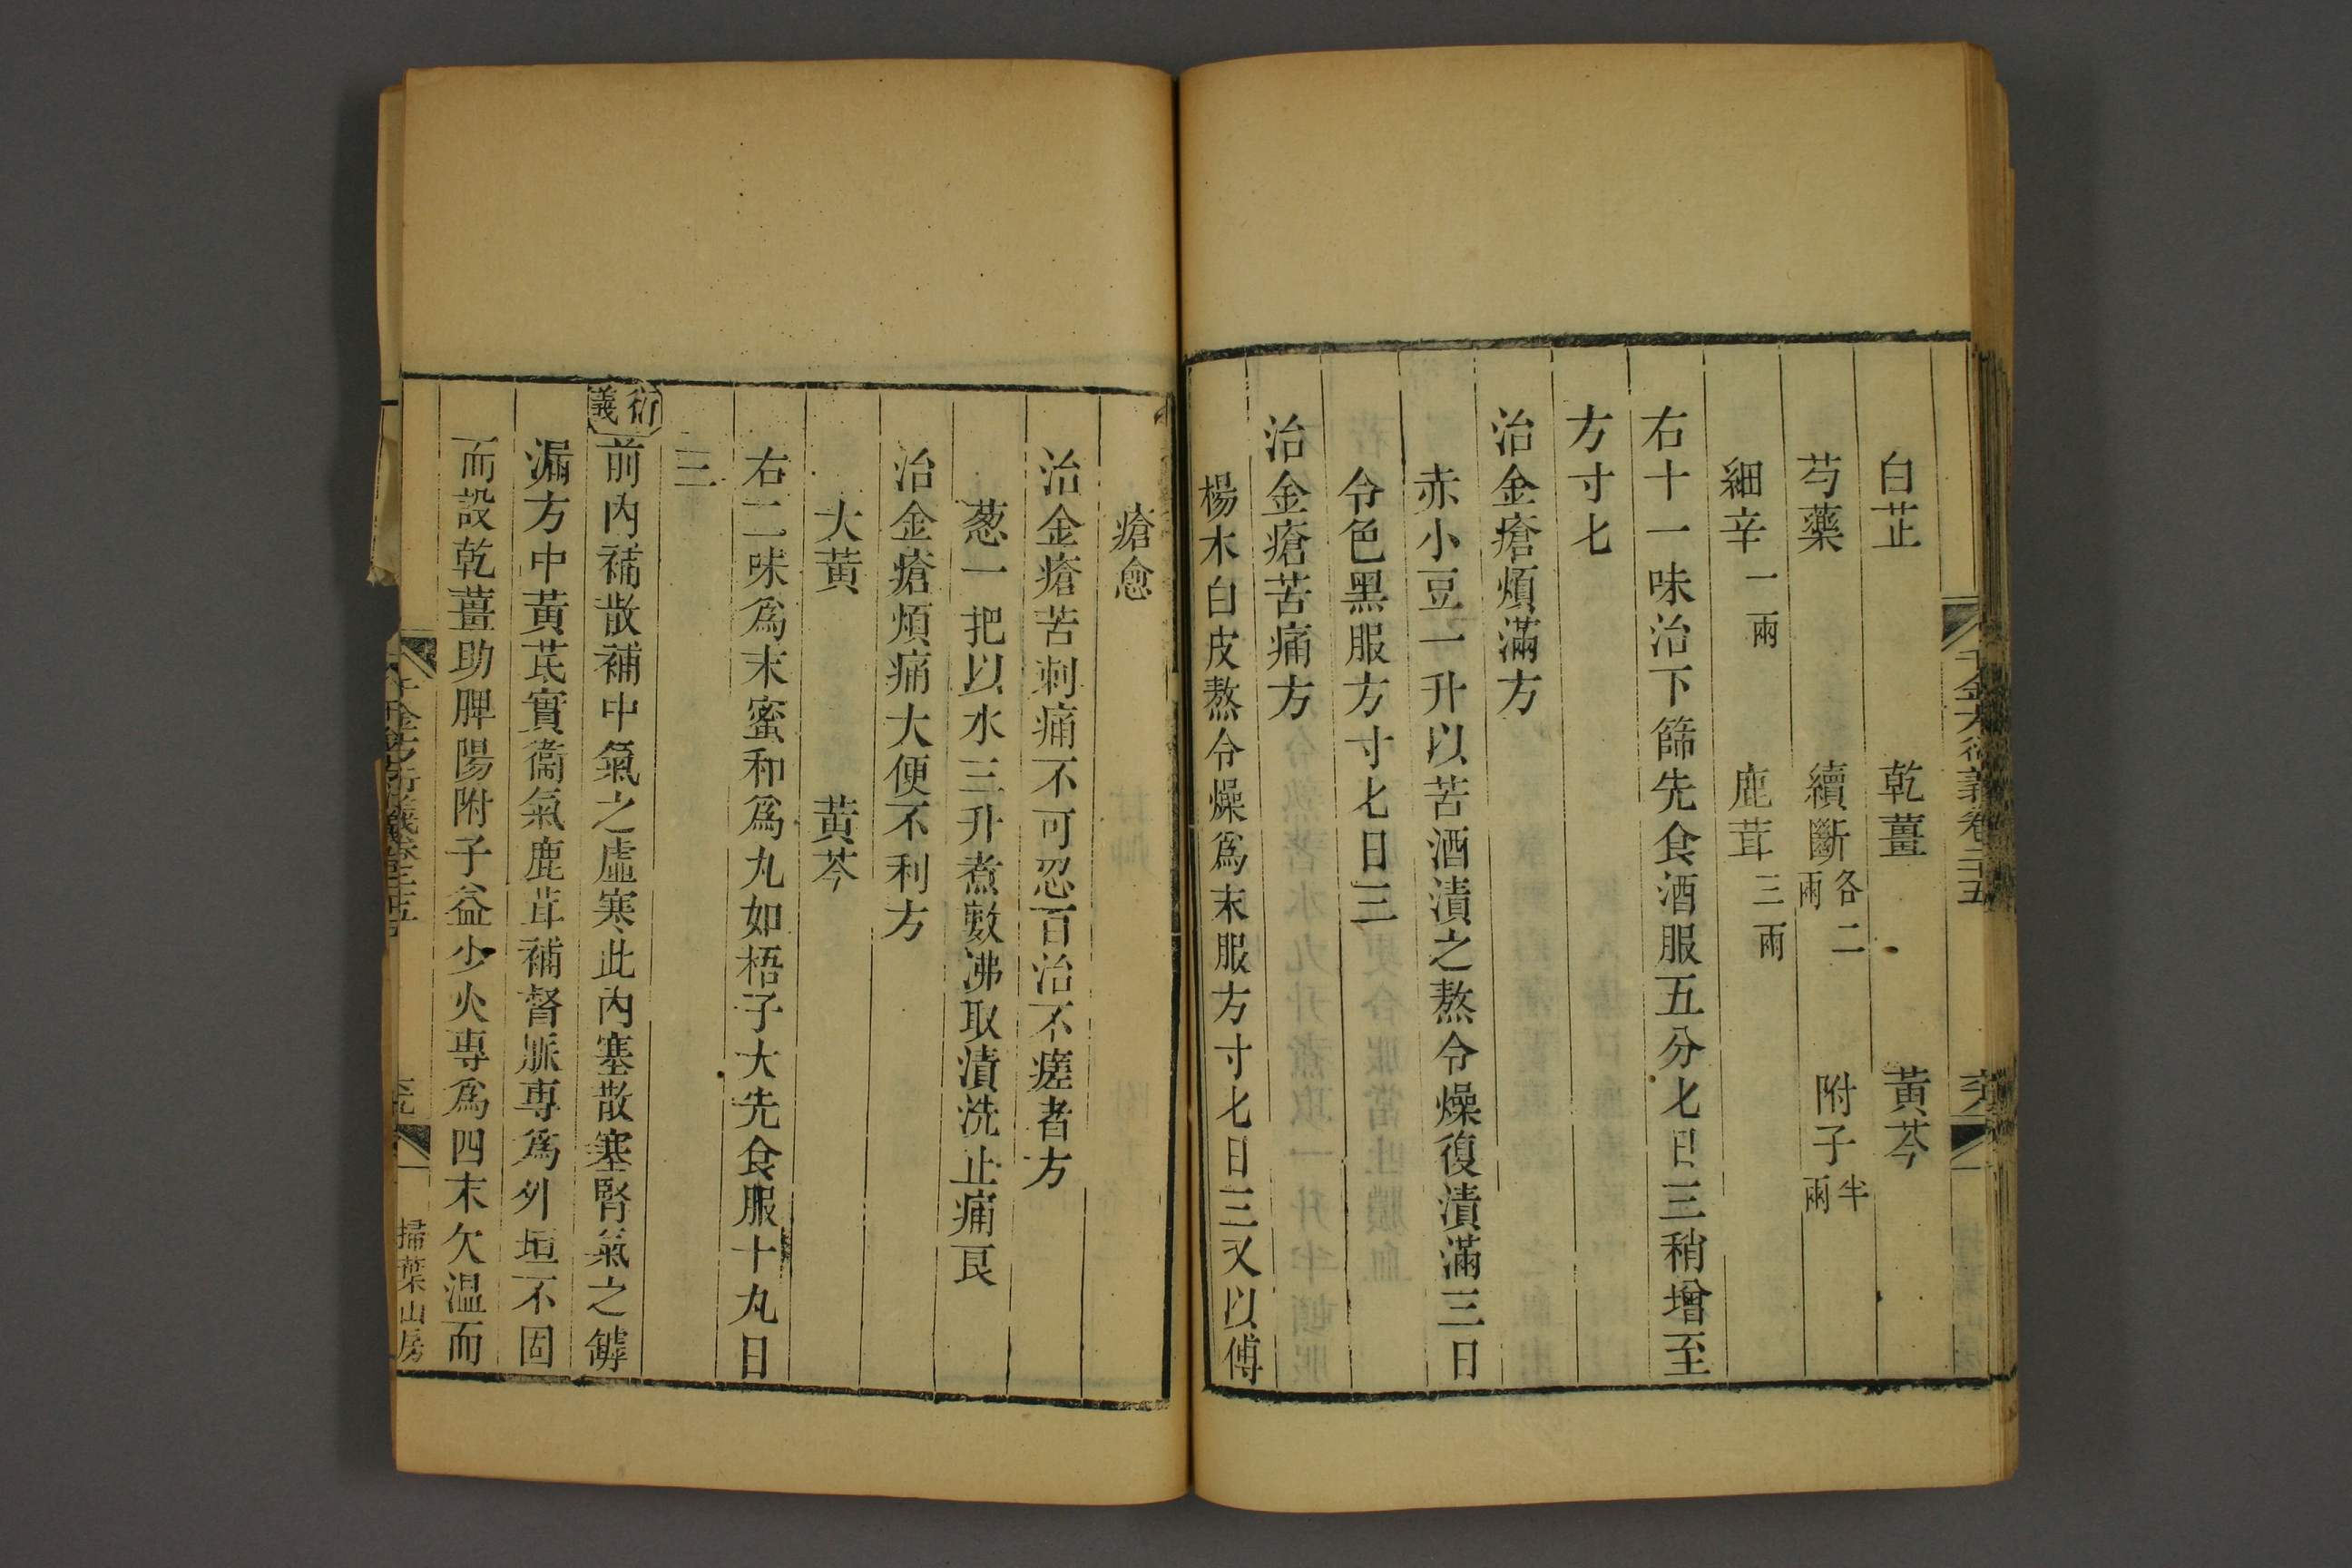 千金方衍義卷二十五
白芷 乾薑 黃芩
芍藥 續斷各二兩 附子半兩
細辛一兩 鹿茸三兩
右十一味治下篩先食酒服五分匕日三稍增至
方寸匕
治金瘡煩滿方
赤小豆一升以苦酒漬之熬令燥復漬滿三日
令色黑服方寸匕日三
治金瘡苦痛方
楊木白皮熬令燥爲末服方寸匕日三又以傅
瘡愈
治金瘡苦刺痛不可忍百治不瘥者方
葱一把以水三升煮數沸取漬洗止痛良
治金瘡煩痛大便不利方
大黃 黃芩
右二味爲末蜜和爲丸如梧子大先食服十丸日
三
衍義 前內補散補中氣之虛寒此內塞散塞腎氣之罅
漏方中黃芪實衞氣鹿茸補督脈專爲外垣不固
而設乾薑助脾陽附子益少火專爲四末欠温而
千金方衍義卷二十五
掃葉山房